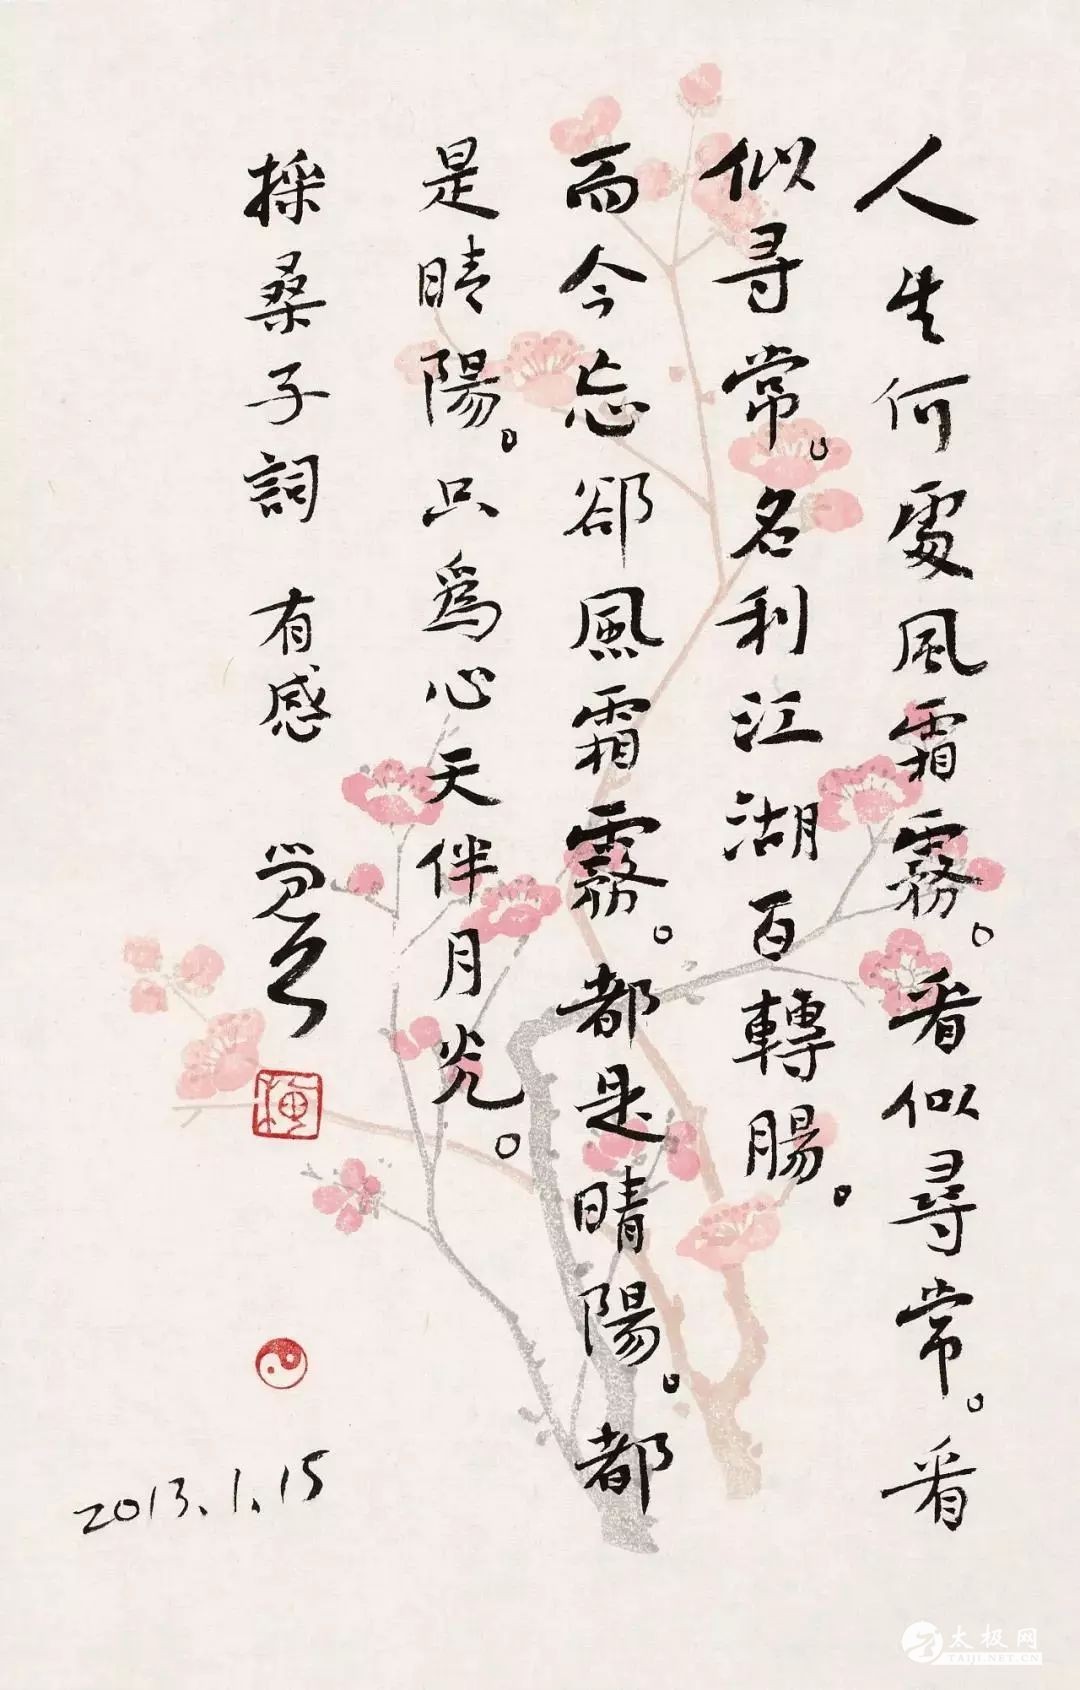 人生何處風霜霧。看似尋常。看
似尋常。名利江湖百轉腸。
而今忘卻風霜霧。都是晴陽。都
是晴陽。只為心天伴月光。
採桑子詞 有感 觉
2013.1.15
太极网
TAIJI.NET.CN